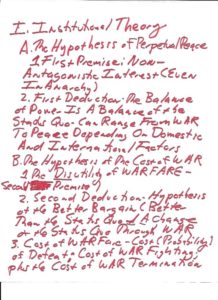 I. Institutional Theory
A. The Hypothesis of Perpetual Peace
1 First Premise: Non-
Antagonistic Interest (Even
In Anarchy)
2. First Deduction: The Balance
of Power Is A Balance of the
Status Quo: Can Range From WAR
To Peace Depending On Domestic
And International Factors
B. The Hypothesis of the Cost of WAR
1 The Disutility of WARFARE-
Second Premise
2. Second Deduction: Hypothesis
of the Better Bargain (Better
Than the Status Quo) A Change
of the Status Quo Through WAR
3. Cost of WARFare - Cost (Probability)
of Defeat + Cost of WAR Fighting
plus the Cost of WAR Termination